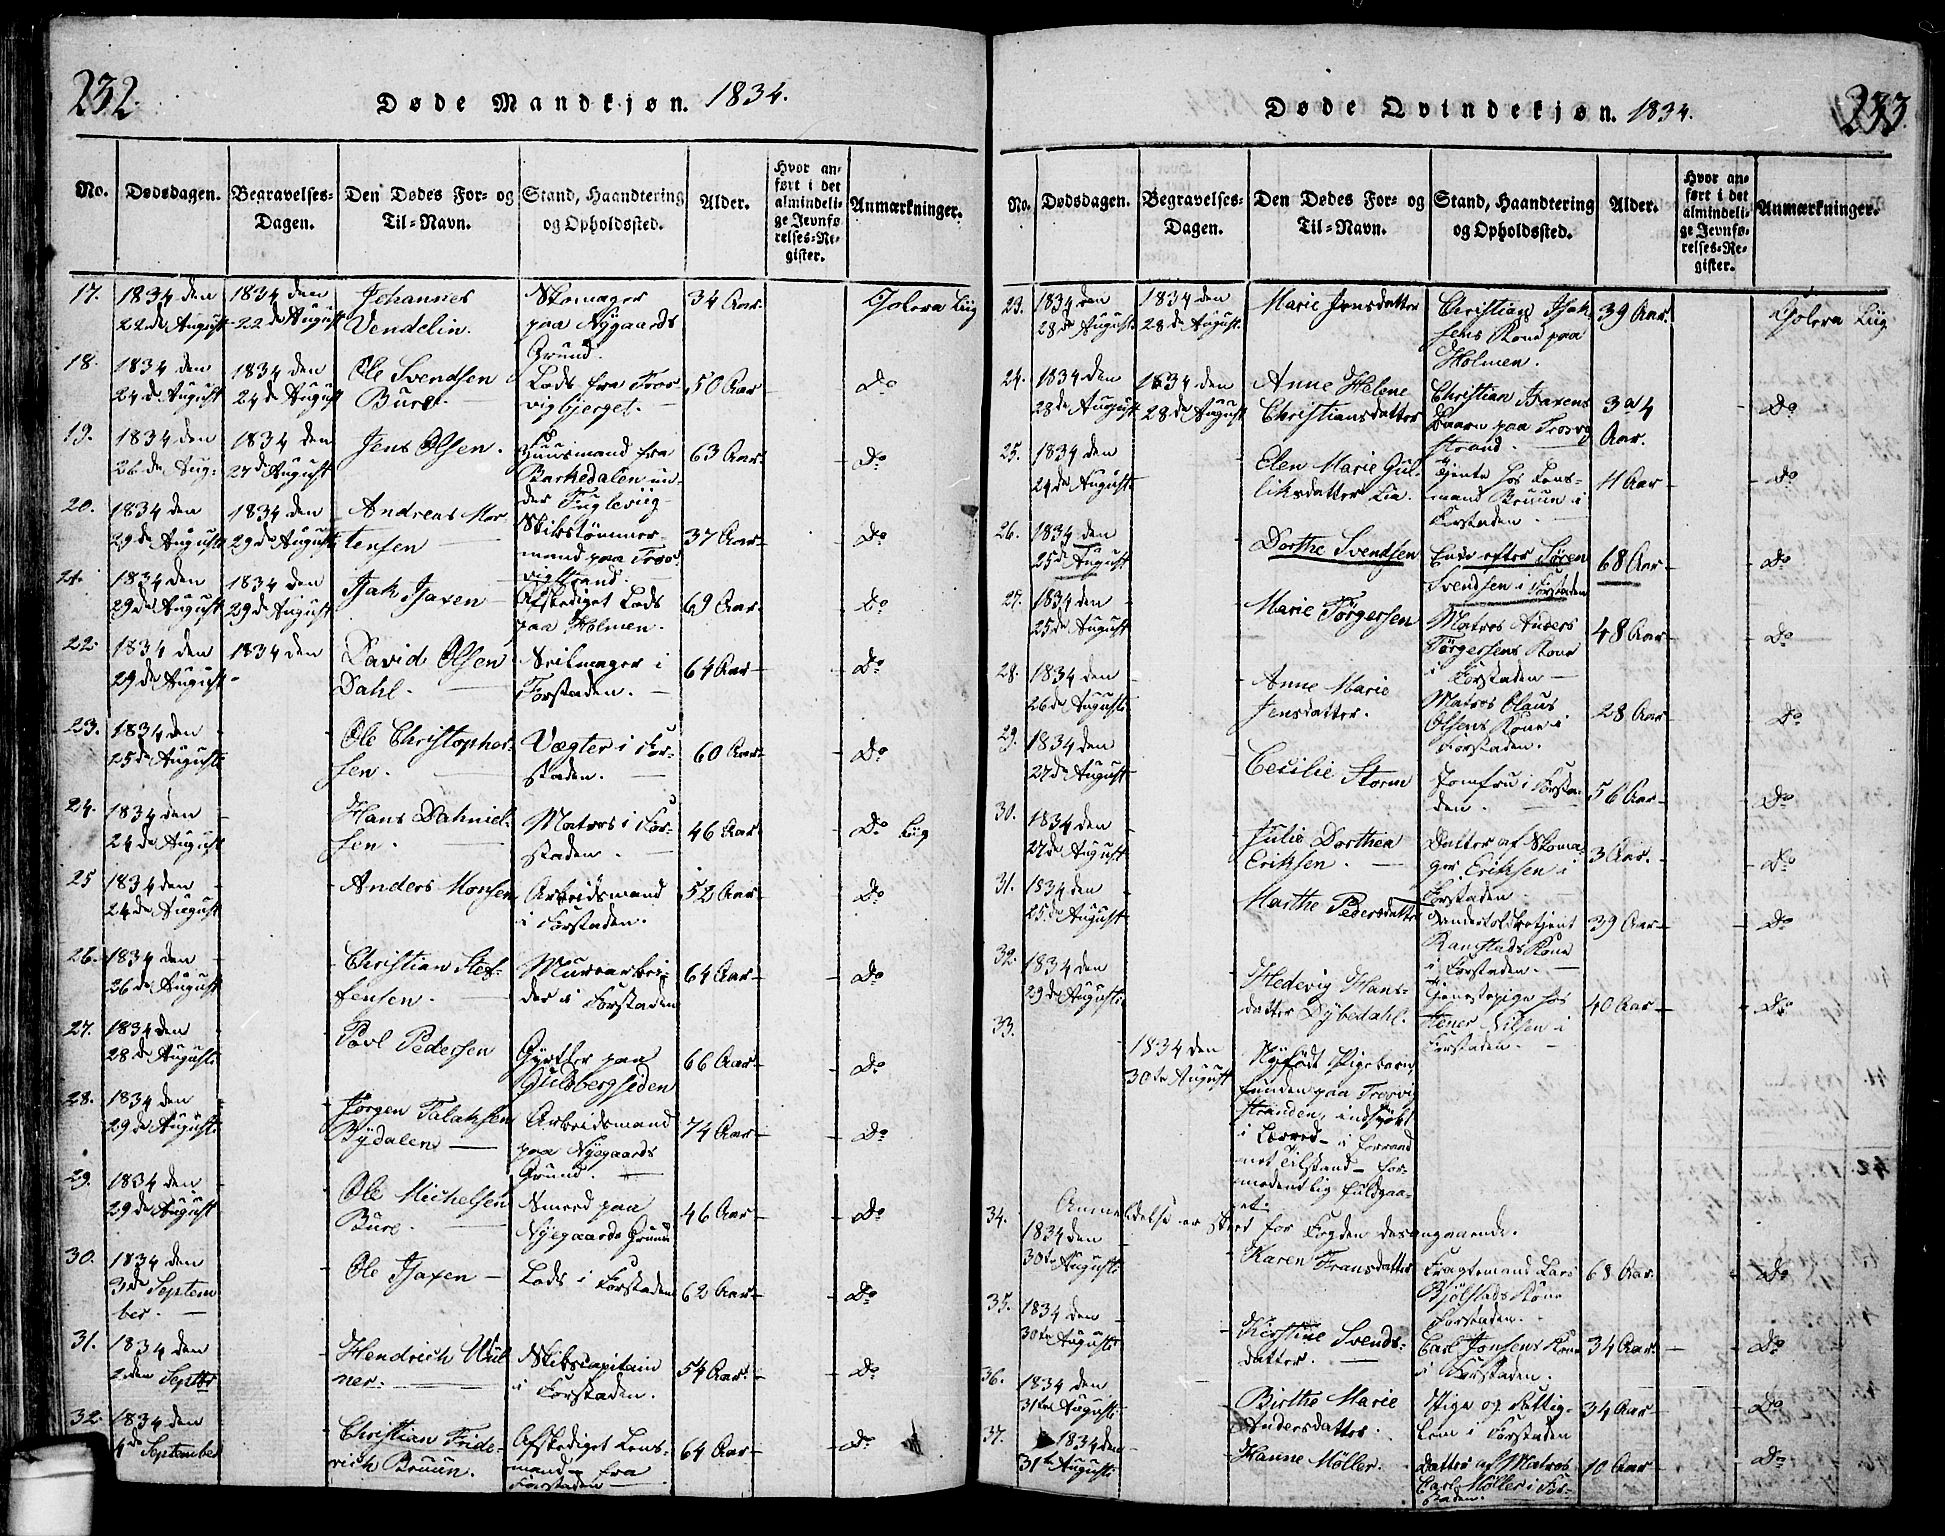 232.
Døde Mandkjøn. 1834.
No. Dødsdagen. Begravelses-Dagen. Den Dødes For- og Til-Navn. Stand, Haandtering og Opholdssted. Alder. Hvor anført i det almindelige Jevnførelses-Register. Anmærkninger.
17. 1834 den 22de August 1834 den 22de August Johannes Vendelin. Skomager paa Nygaards Grund. 34 Aar. Colera Liig
18. 1834 den 24de August 1834 den 24de August Ole Svendsen Bure. Lods fra Trosvigbjerget. 50 Aar Do
19. 1834 den 26de Aug: 1834 den 27de August Jens Olsen. Huusmand fra Barkedalen under Fuglevig 63 Aar. Do
20. 1834 den 29de August 1834 den 29de August Andreas Mortensen Skibstømmermand paa Trosvigstrand. 37 Aar Do
21. 1834 den 29de August 1834 den 29de August Isak Isaxen Afskediget Lods paa Holmen. 69 Aar. Do
22. 1834 den 29de August 1834 den David Olsen Dahl. Seilmager i Forstaden. 64 Aar Do
23. 1834 den 25de August Ole Christophersen. Vægter i Forstaden. 60 Aar Do
24. 1834 den 24de August Hans Dahnielsen. Matros i Forstaden. 46 Aar Do Liig
25 1834 den 24de August Anders Monsen Arbeidsmand i Forstaden. 52 Aar Do
26. 1834 den 26de August Christian Steffensen. Murarbeider i Forstaden 64 Aar Do
27. 1834 den 28de August Povl Pedersen Gyrtler paa Guldbergsiden 66 Aar Do
28. 1834 den 29de August Jørgen Talaksen Bydalen Arbeidsmand paa Nyegaards Grund. 74 Aar Do
29. 1834 den 29de August Ole Michelsen Bure. paa Nyegaards Grund 46 Aar Do
30. 1834 den 3de September. Ole Isaxen Lods i Forstaden 62 Aar Do
31. 1834 den 2den Septbr Hendrich Wulner. Skibscapitain i Forstaden. 54 Aar. Do
32. 1834 den 4de September Christian Friderich Bruun. Afskediget Lensmand fra Forstaden 64 Aar Do
233.
Døde Qvindekjøn. 1834.
No. Dødsdagen. Begravelses-Dagen. Den Dødes For- og Til-Navn. Stand, Haandtering og Opholdssted. Alder. Hvor anført i det almindelige Jevnførelses-Register. Anmærkninger.
23. 1834 den 28de August 1834 den 28de August. Marie Jensdatter Christian Isaksens Kone paa Holmen. 39 Aar. Colera Liig
24. 1834 den 28de August 1834 den 28de August Anne Helene Christiansdatter Christian Isaxens Baarn paa Trosvigstrand. 3 a 4 Aar. Do
25. 1834 den 24de August Elen Marie Gulliksdatter Lia. Tjente hos Lensmand Bruun i Forstaden. 11 Aar Do
26. 1834 den 25de August Dorthe Svendsen Enke efter Søren Svendsen i Forstaden 68 Aar Do
27. 1834 den 25de August Marie Tørgersen Matros Anders Tørgersens Kone i Forstaden 48 Aar Do
28. 1834 den 26de August Anne Marie Jensdatter. Matros Olaus Olsens Kone i Forstaden. 28 Aar Do
29. 1834 den 27de August Cecilie Storm Jomfru i Forstaden. 56 Aar Do
30. 1834 den 27de August Julie Dorthea Eriksen. Datter af Skomager Eriksen i Forstaden. 3 Aar. Do
31. 1834 den 25de August Marthe Pedersdatter Kone i Forstaden. 39 Aar Do
32. 1834 den 29de August Hedevig Hansdatter Dybedahl. Tjenestepige hos Nilsen i Forstaden. 40 Aar Do
33. 1834 den 30te August Nyfødt Pigebarn, funden paa Trosvigstranden, indsyet i Lærred i Forraadnet Tilstand formodentlig fuldgaaet.
Anmeldelse er skeet for Fogden desangaaende.
34. 1834 den 30te August Karen Fransdatter Fragtemand Lars Bjølstads Kone Forstaden. 68 Aar. Do
35. 1834 den 30te August Kirstine Svendsdatter. Carl Jonsens Kone i Forstaden. 34 Aar. Do
36. 1834 den 31te August Birthe Marie Andersdatter. Pige og Fattiglem i Forstaden 34 Aar Do
37. 1834 den 31te August Hanne Møller. Datter af Matros Carl Møller i Forstaden. 10 Aar Do